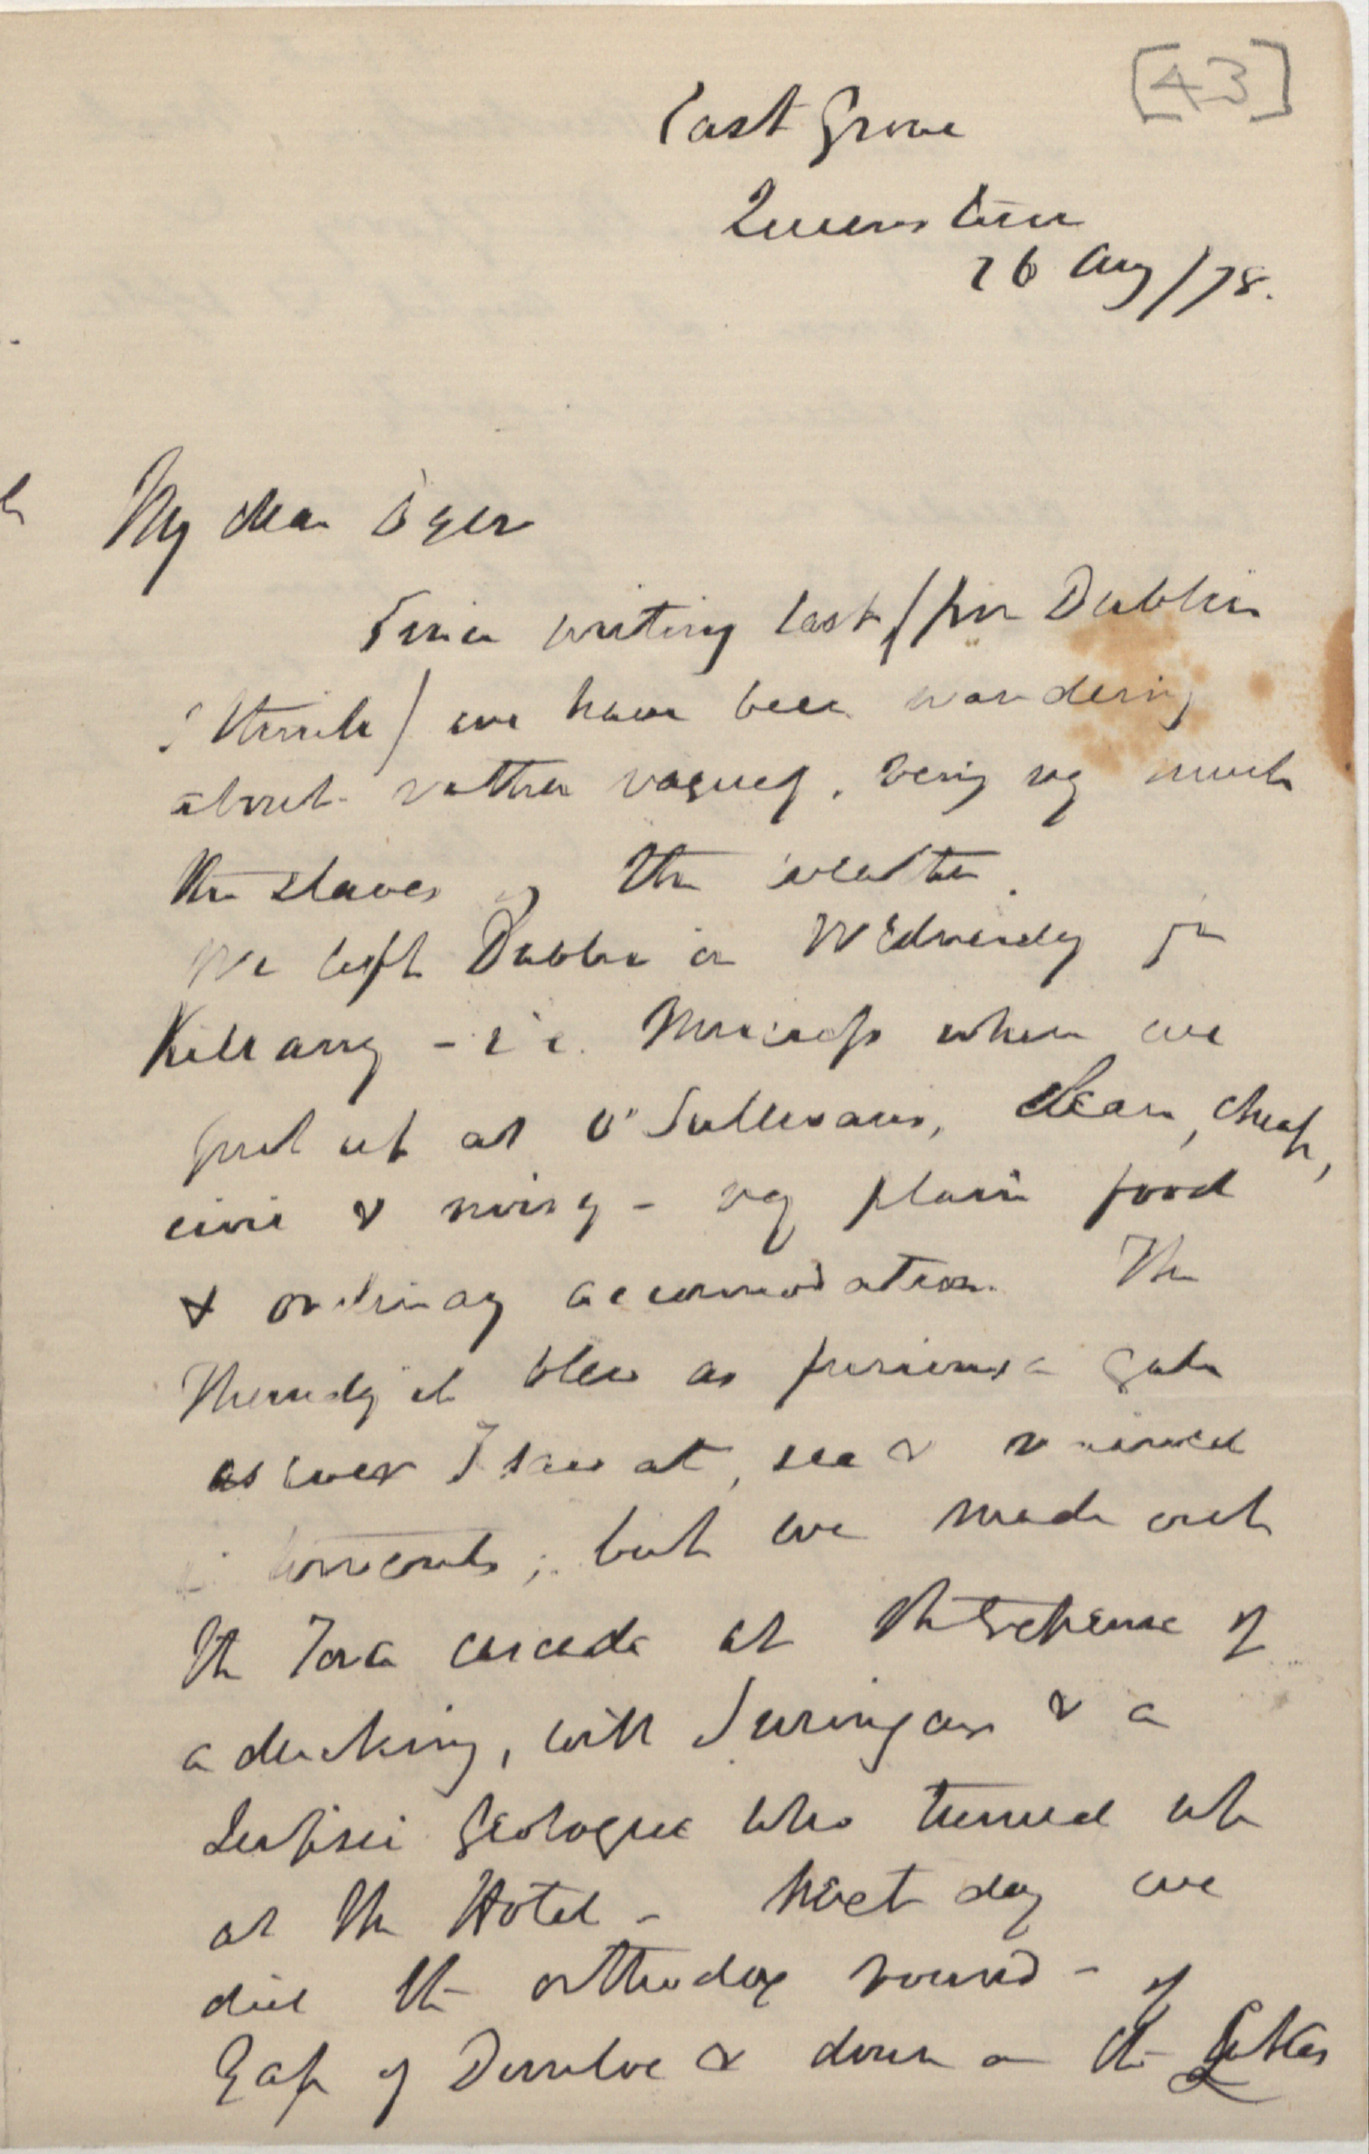 [43]
East Grove
Queenstown
26 Aug /78.
My dear Dyer
Since writing last (from Dublin
I think) we have been wandering
about rather vaguely, being very much
the slaves of the weather.
We left Dublin on Wednesday for
Killarney - i.e. Muckross where we
put up at O'Sullivans, clean, cheap,
civil & noisy - very plain food
& ordinary accommodation. The
Thursday it blew as furious a gale
as ever I saw at sea & rained
in torrents; but we made out
the Torc cascade at the expense of
a ducking, with Suringar & a
geologue who turned up
at the Hotel - Next day we
did the orthodox round - of
Gap of Dunloe & down on the Lakes